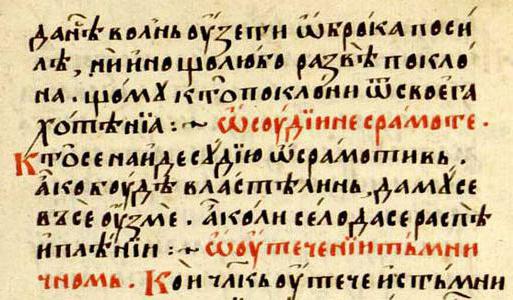 да нѣ волнь ѹзети ѿброка поси
лѣ, ни ино щолюбо развѣ покло
на. щомѹ ктѡ поклони ѿ своега
хотѣнїа :~ ѡ сѹдїи не срамоте.
Ктѡ се наиде сѹдїю ѡсрамотивь.
ако бѹдѣ властѣлинь, да мѹ се
въсе ѹзме. ако ли село да се распѣ
и плѣнїи :~ ѡ ѹтеченїи тьмни
чномь. Кои чл҃кь ѹтече ис тьмни